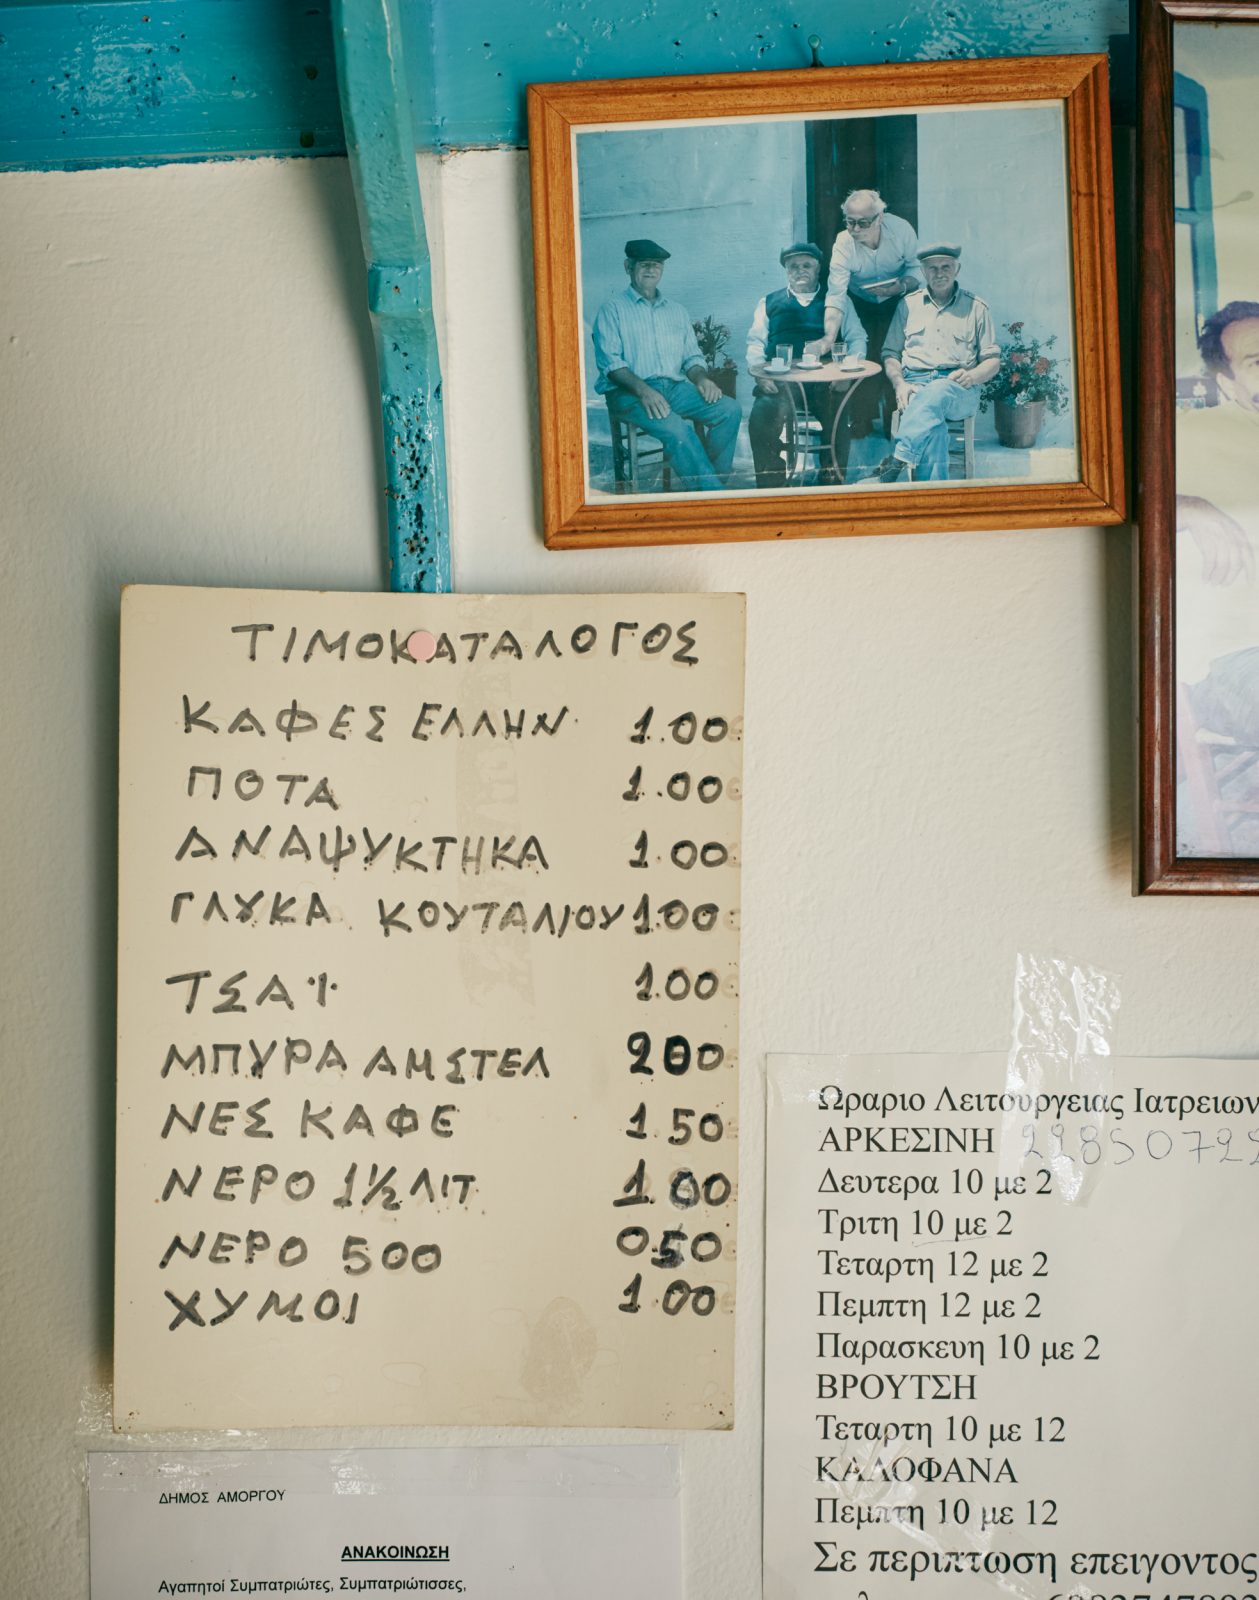 ΤΙΜΟΚΑΤΑΛΟΓΟΣ
ΚΑΦΕΣ ΕΛΛΗΝ. 1.00
ΠΟΤΑ 1.00
ΑΝΑΨΥΚΤΗΚΑ 1.00
ΓΛΥΚΑ ΚΟΥΤΑΛΙΟΥ 1.00
ΤΣΑΪ 1.00
ΜΠΥΡΑ ΑΜΣΤΕΛ 200
ΝΕΣ ΚΑΦΕ 1.50
ΝΕΡΟ 1½ ΛΙΤ 1.00
ΝΕΡΟ 500 0.50
ΧΥΜΟΙ 1.00
Ωραριο Λειτουργειας Ιατρειων
ΑΡΚΕΣΙΝΗ
Δευτερα 10 με 2
Τριτη 10 με 2
Τεταρτη 12 με 2
Πεμπτη 12 με 2
Παρασκευη 10 με 2
ΒΡΟΥΤΣΗ
Τεταρτη 10 με 12
ΚΑΛΟΦΑΝΑ
Πεμπτη 10 με 12
Σε περιπτωση επειγοντος
ΔΗΜΟΣ ΑΜΟΡΓΟΥ
ΑΝΑΚΟΙΝΩΣΗ
Αγαπητοί Συμπατριώτες, Συμπατριώτισσες,